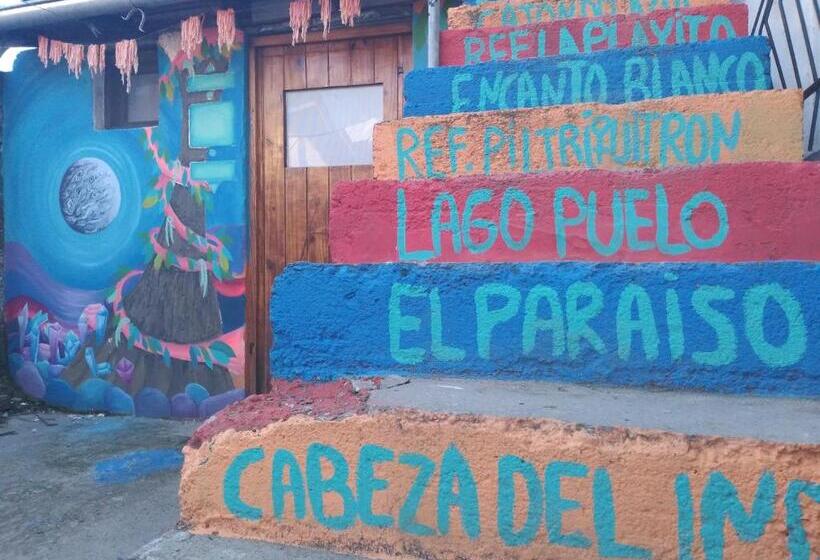 REF LA PLAYITO
ENCANTO BLANCO
REF. PILTRIQUITRON
LAGO PUELO
EL PARAISO
CABEZA DEL IN